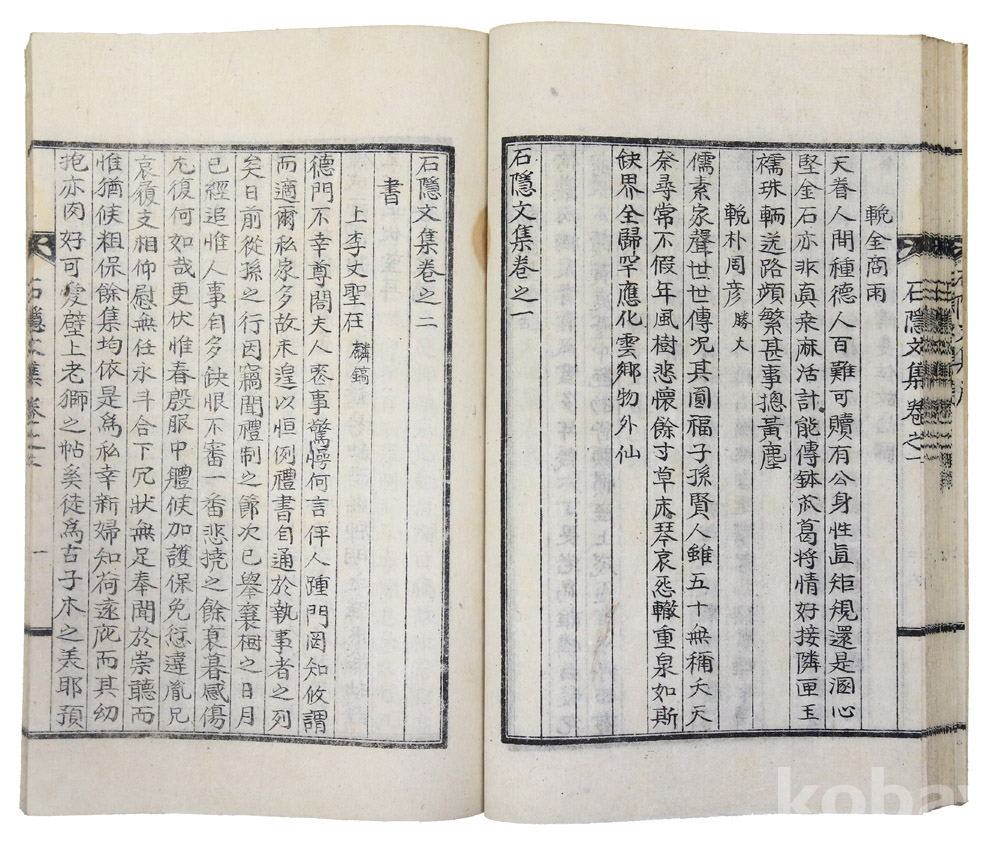 輓金商雨
天眷人間種德人百難可贖有公身性眞矩規還是溷心
堅金石亦非眞桒麻活計能傳鉢苽葛将情好接隣匣玉
襦珠輌送路頻繁甚事摠黃塵
輓朴周彦 勝大
儒素家聲世世傳况其圓福子孫賢人雖五十無稱夭天
奈尋常不假年風樹悲懷餘寸草床琴哀怨轍重泉如斯
缺界全歸罕應化雲鄉物外仙
石隱文集卷之一
石隱文集 卷之一
石隱文集卷之二
書
上李丈聖在 麟鎬
德門不幸尊閤夫人喪事驚愕何言伻人踵門罔知攸謂
而適爾私家多故未遑以恒例禮書自通於執事者之列
矣日前從孫之行因竊聞禮制之節次已擧襄樹之日月
已經追惟人事自多缺恨不審一番悲撓之餘衰暮感傷
尤復何如哉更伏惟春殷服中體候加護保免愆違胤兄
哀履支相仰慰無任永斗合下冗狀無足奉聞於崇聽而
惟猶候粗保餘集均依是爲私幸新婦知荷遠庇而其幼
抱亦肉好可愛壁上老獅之帖奚徒爲古子木之美耶預
石隱文集 卷之二
一
kobay